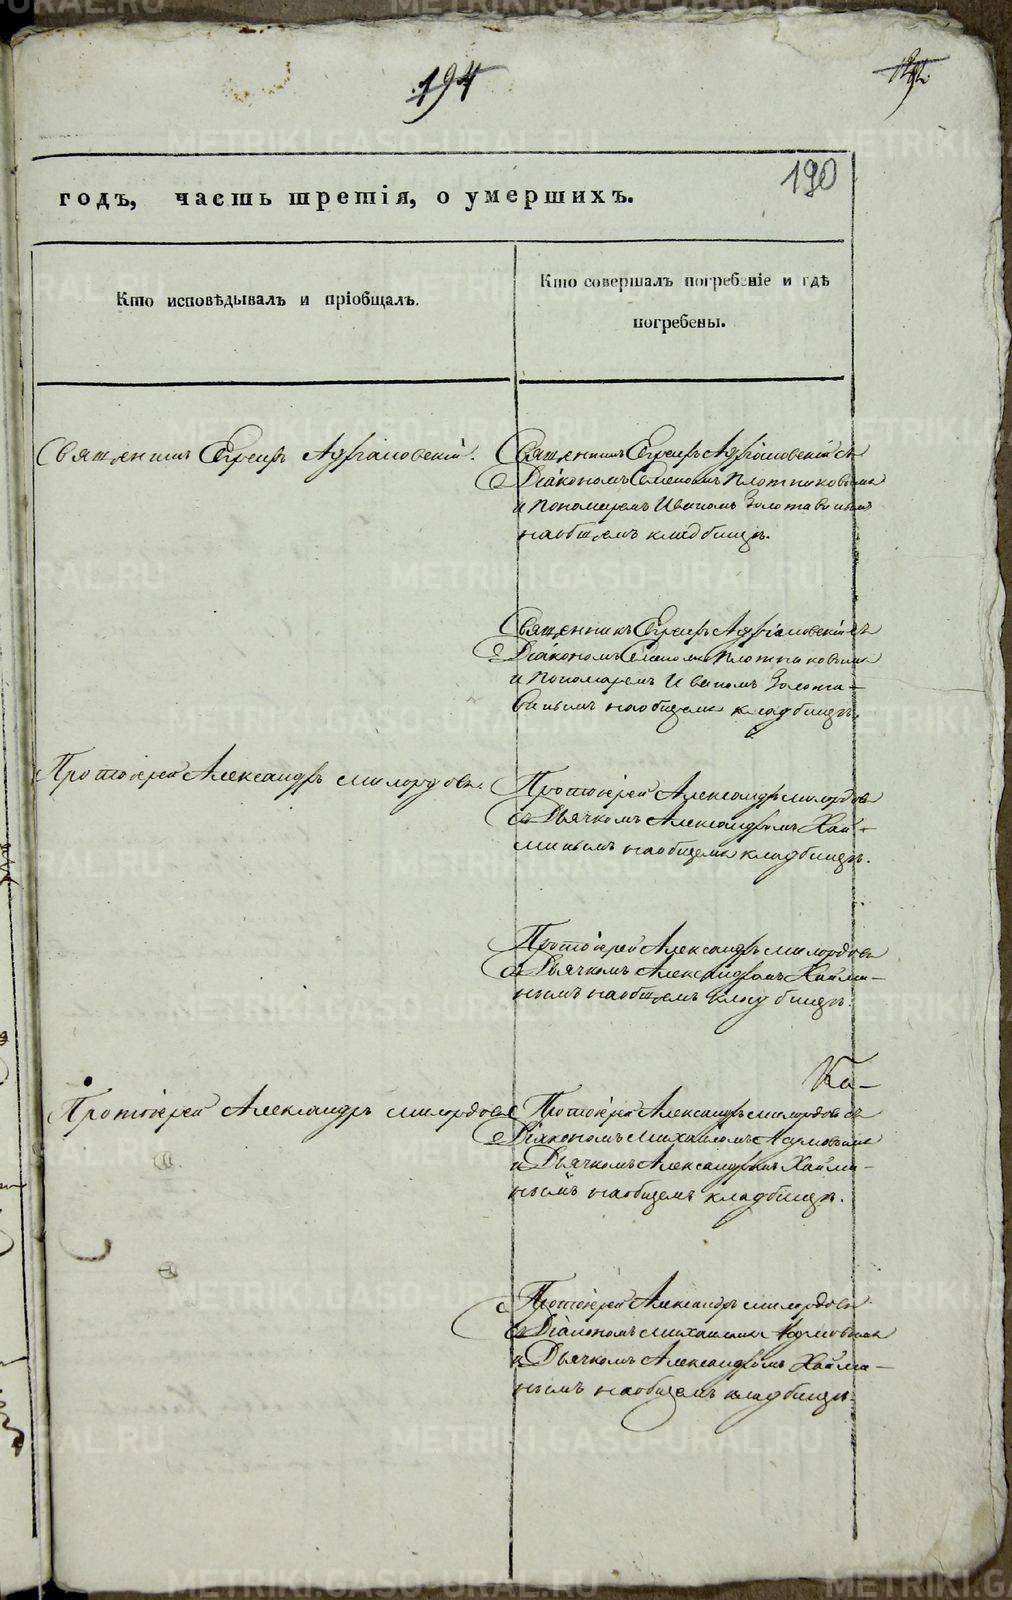 194
190
годъ, часть третія, о умершихъ.
Кто исповѣдывалъ и пріобщалъ.
Кто совершалъ погребеніе и гдѣ
погребены.
Священникъ Адріановскій.
Священникъ Адріановскій съ
Діакономъ Плотниковымъ
и Пономаремъ Иваномъ
на общемъ кладбищѣ.
Священникъ Адріановскій съ
Діакономъ Плотниковымъ
и Пономаремъ Иваномъ Золота-
винымъ на общемъ кладбищѣ.
Протоіерей Александръ Милордовъ.
Протоіерей Александръ Милордовъ
съ Дьячкомъ Александромъ Хай-
минымъ на общемъ кладбищѣ.
Протоіерей Александръ Милордовъ
съ Дьячкомъ Александромъ Хайми-
нымъ на общемъ кладбищѣ.
Ка-
Протоіерей Александръ Милордовъ
Протоіерей Александръ Милордовъ съ
Діакономъ Михаиломъ
и Дьячкомъ Александромъ Хайми-
нымъ на общемъ кладбищѣ.
Протоіерей Александръ Милордовъ
съ Діакономъ Михаиломъ
и Дьячкомъ Александромъ Хайми-
нымъ на общемъ кладбищѣ.
METRIKI.GASO-URAL.RU